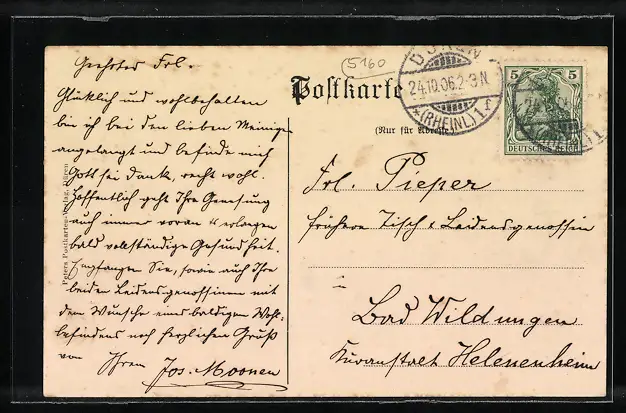 Geehrtes Frl.
Glücklich und wohlbehalten
bin ich bei den lieben Meinigen
angelangt und befinde mich
Gott sei Dank, recht wohl.
Hoffentlich geht Ihre Genesung
auch immer voran u erlangen
bald vollständige Gesundheit.
Empfangen Sie, sowie auch Ihre
beiden Leidensgenossinnen mit
dem Wunsche eines baldigen Wohl-
befindens noch herzlichen Gruß
von Ihrem Jos. Moonen
Peters Postkarten-Verlag, Düren
5160
Postkarte
(Nur für Adresse)
DÜREN
24.10.06.2-3N
*(RHEINL.)1f
5 5
DEUTSCHES REICH
Frl. Pieper
frühere Tisch & Leidensgenossin
Bad Wildungen
Kuranstalt Helenenheim